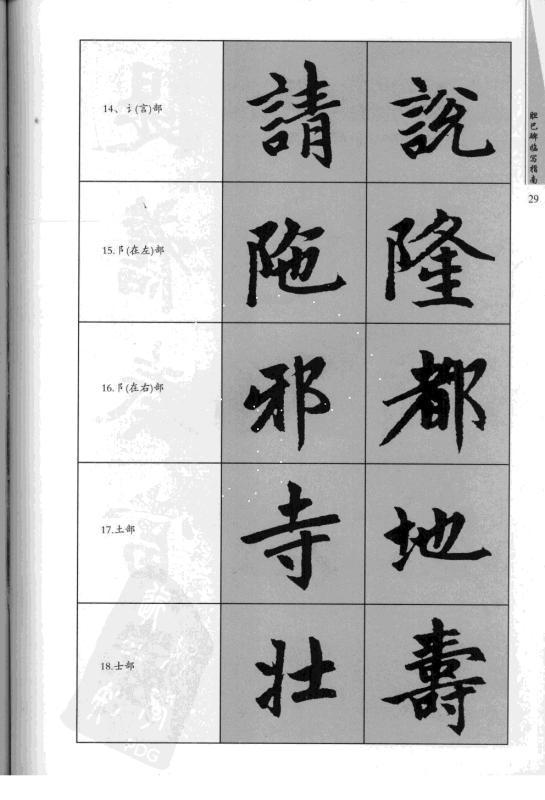 14、讠(言)部
請 說
15.阝(在左)部
陁 隆
16.阝(在右)部
邪 都
17.土部
寺 地
18.士部
壮 壽
胆巴碑临写指南
29